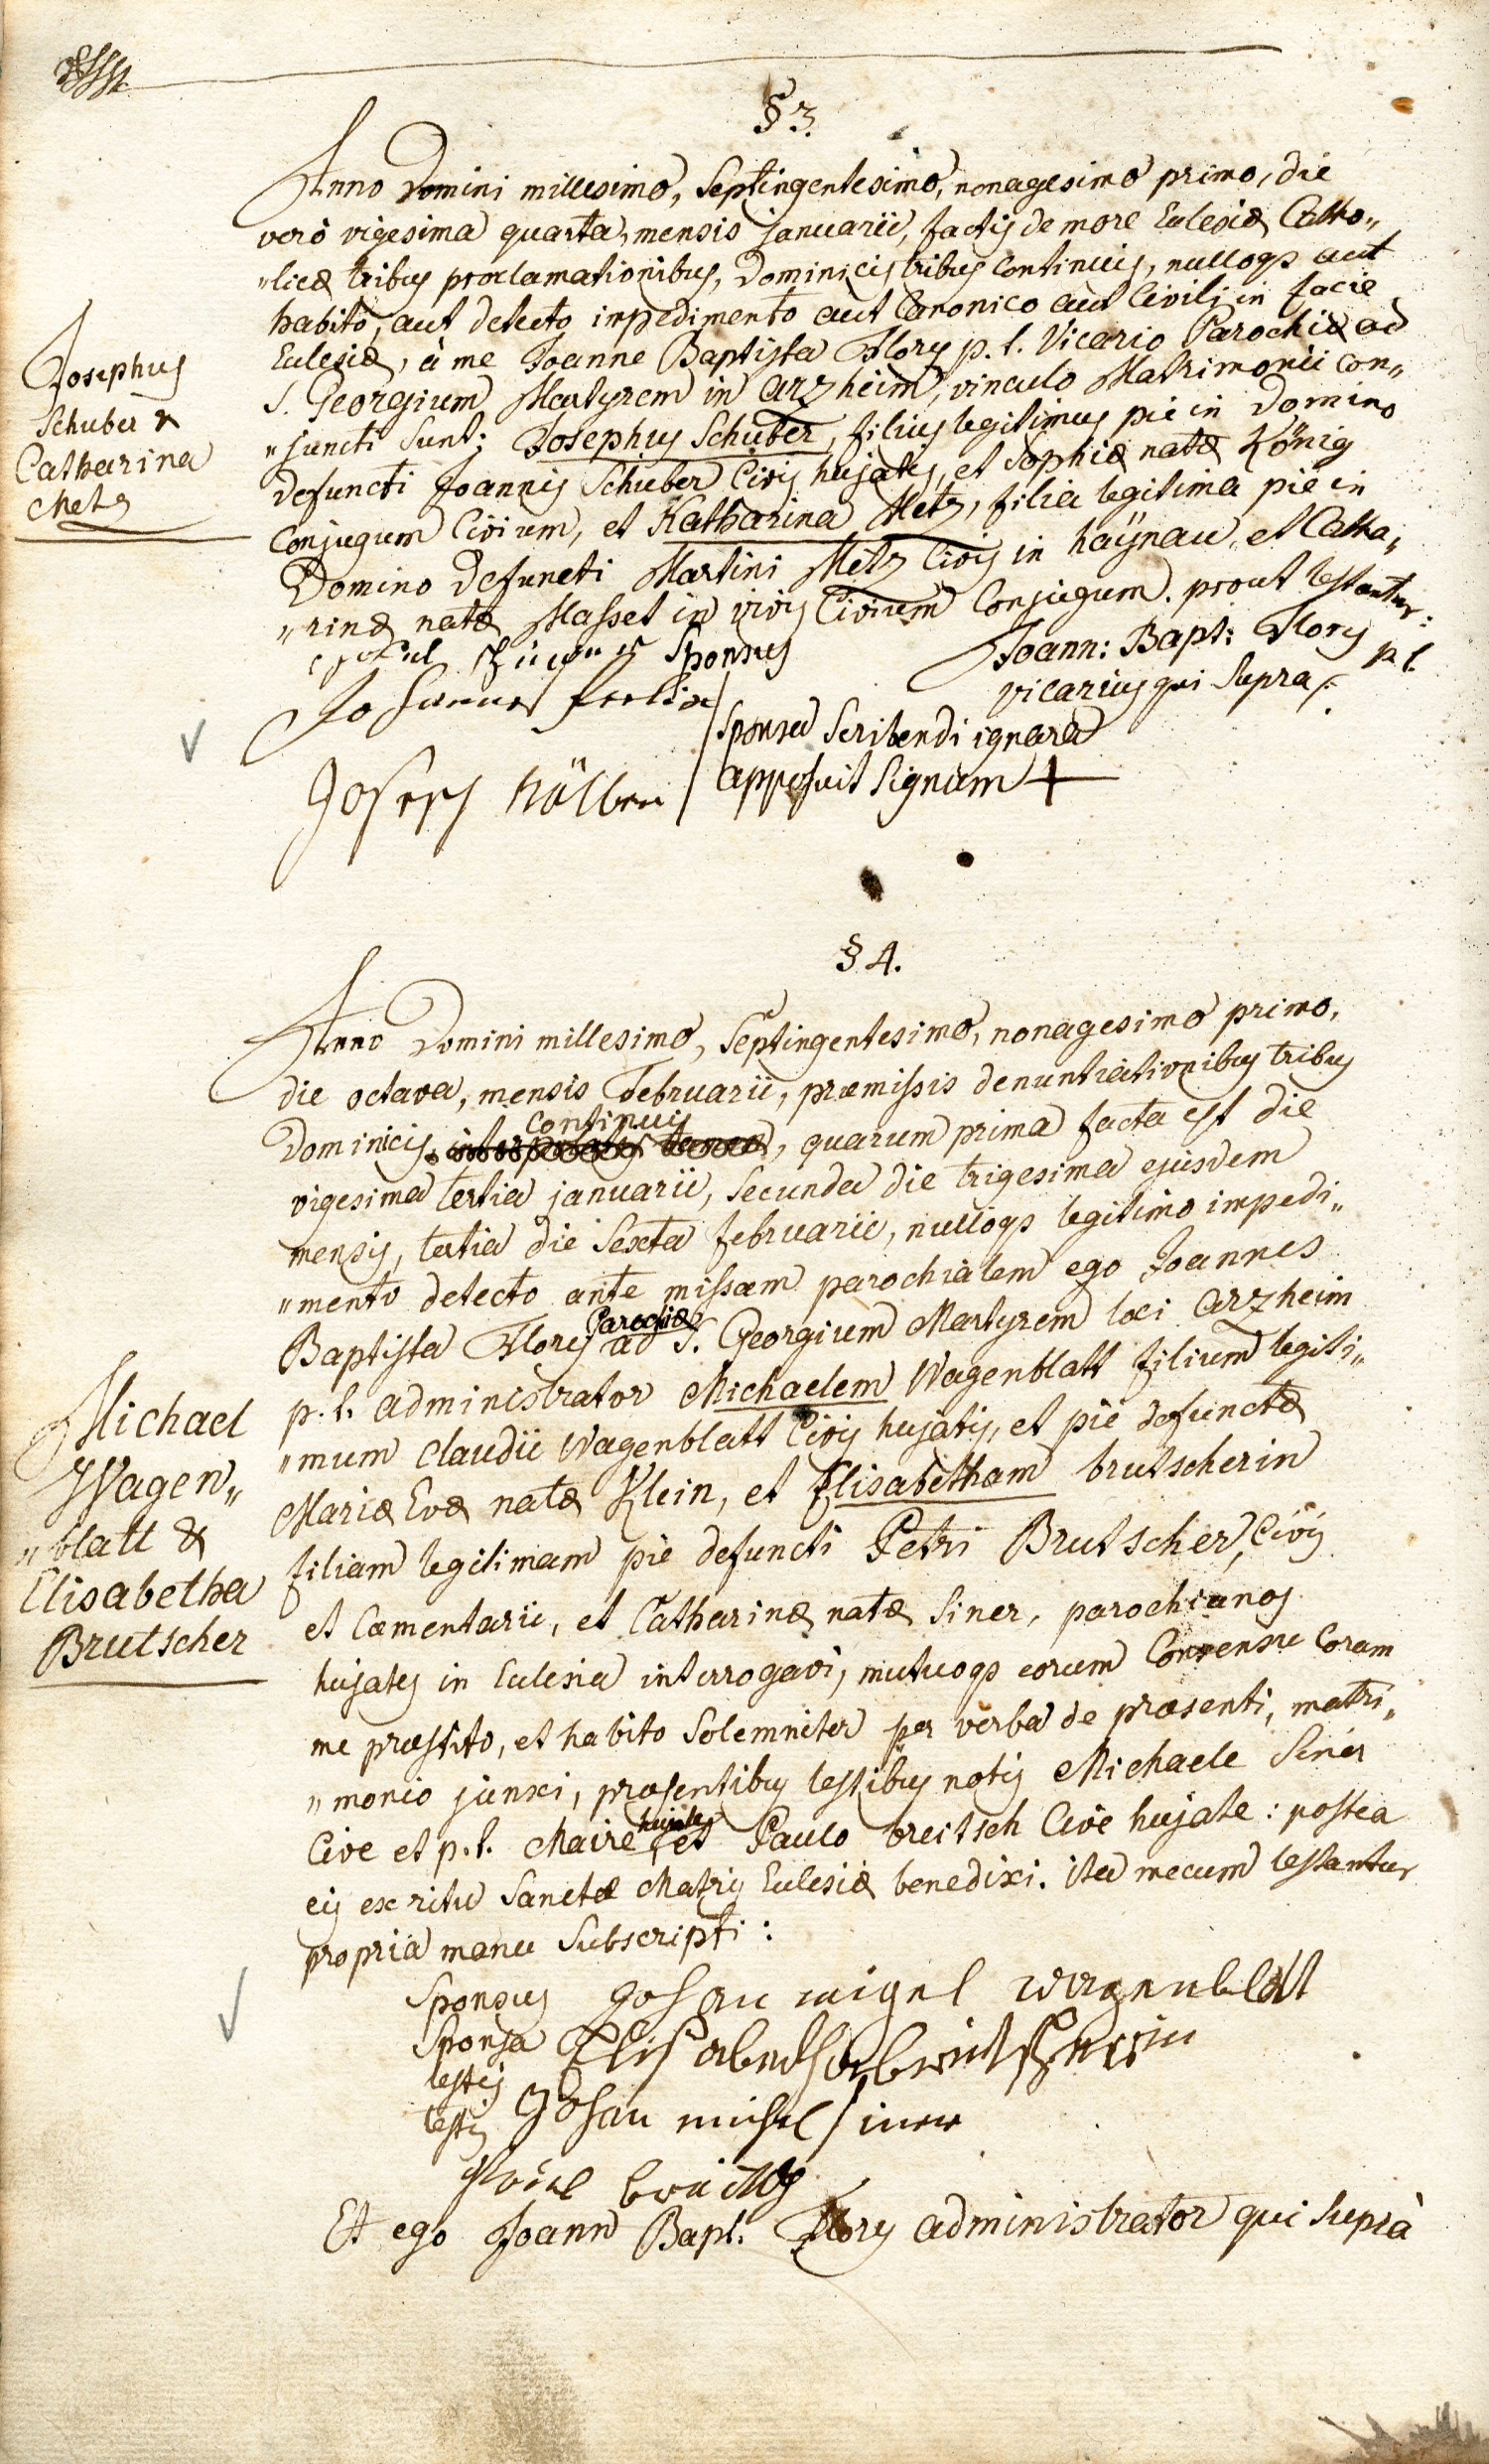 § 3.
Anno Domini millesimo, Septingentesimo, nonagesimo primo, die
verò vigesima quarta, mensis januarii, factis de more Eclesiæ Catho„
„licæ tribus proclamationibus, Dominicis tribus continuis, nulloqs aut
habito, aut detecto impedimento aut Canonico aut Civili in facie
Eclesiæ, à me Joanne Baptista Flory p. t. Vicario Parochiæ ad
S. Georgium Martyrem in arzheim, vinculo Matrimonii con„
„juncti sunt: Josephus Schuber, filius legitimus pie in Domino
defuncti Joannis Schuber Civis hujatis, et Sophiæ natæ König
Conjugum Civium, et Katharina Metz, filia legitima pie in
Domino defuncti Martini Metz Civis in haÿnau, et Catha„
„rinæ natæ Masset in vivis Civium Conjugum. prout testantur:
Josephus
Schuber &
Catharina
Metz
Sponsus
Joann: Bapt: Flory p. t.
vicarius qui supra
Sponsa Scribendi ignara
apposuit Signum +
Joseph
§ 4.
Anno Domini millesimo, Septingentesimo, nonagesimo primo,
die octava, mensis Februarii, præmissis denuntiationibus tribus
continuis
Dominicis, quarum prima facta est die
vigesima tertia januarii, Secunda die trigesima ejusdem
mensis, tertia die Sexta februarii, nulloqs legitimo impedi„
„mento detecto ante missam parochialem ego Joannes
Parochiæ
Baptista Flory ad S. Georgium Martyrem loci Arzheim
p. t. administrator Michaelem Wagenblatt filium legiti„
„mum Claudii Wagenblatt Civis hujatis, et pie defunctæ
Mariæ Evæ natæ Klein, et Elisabetham brutscherin
filiam legitimam pie defuncti Petri Brutscher, Civis
et Cæmentarii, et Catharinæ natæ Siner, parochianos
hujates in Eclesia interrogavi, mutuoqs eorum Consensu Coram
me præstito, et habito Solemniter per verba de præsenti, matri„
„monio junxi, præsentibus testibus notis Michaele Siner
hujate
Cive et p. t. Maire, et Paulo breitsch Cive hujate: postea
eis ex ritu Sanctæ Matris Eclesiæ benedixi. ita mecum testantur
propria manu Subscripti:
Michael
Wagen„
„blatt &
Elisabetha
Brutscher
Sponsus Johan migel wagenblatt
Sponsa Elisabetha brutscherin
testis Johan michel siner
testis
Et ego Joann Bapt. Flory administrator qui suprà